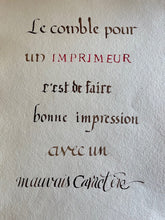 Le comble pour
un IMPRIMEUR
c'est de faire
bonne impression
avec un
mauvais Caractère